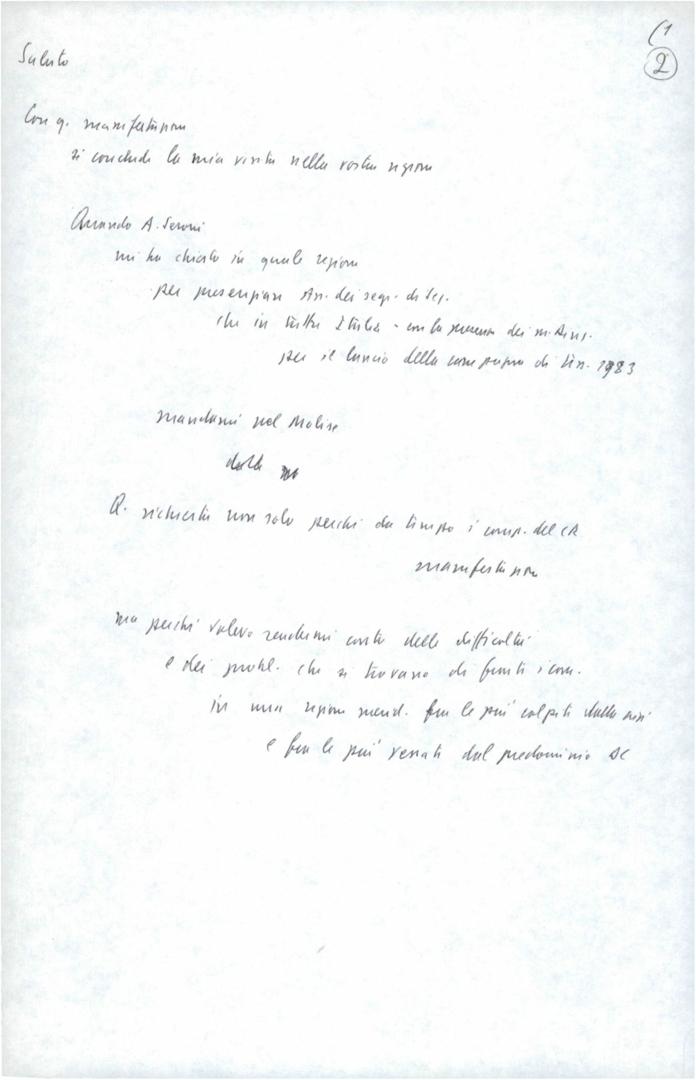 (1
2
Saluto
Con q. manifestazione
si conclude la mia visita nella vostra regione
Quando A. Seroni
mi ha chiesto in quale regione
per presenziare Ass. dei segr. di sez.
che in tutta Italia - con la presenza dei m. Direz.
per il lancio della campagna di 1983
mandami nel Molise
dalle
Q. richiesta non solo perché da tempo i comp. del CR
manifestazione
ma perché volevo rendermi conto delle difficoltà
e dei probl. che si trovano di fronte i com.
in una regione merid. fra le più colpite dalla crisi
e fra le più vessate dal predominio DC